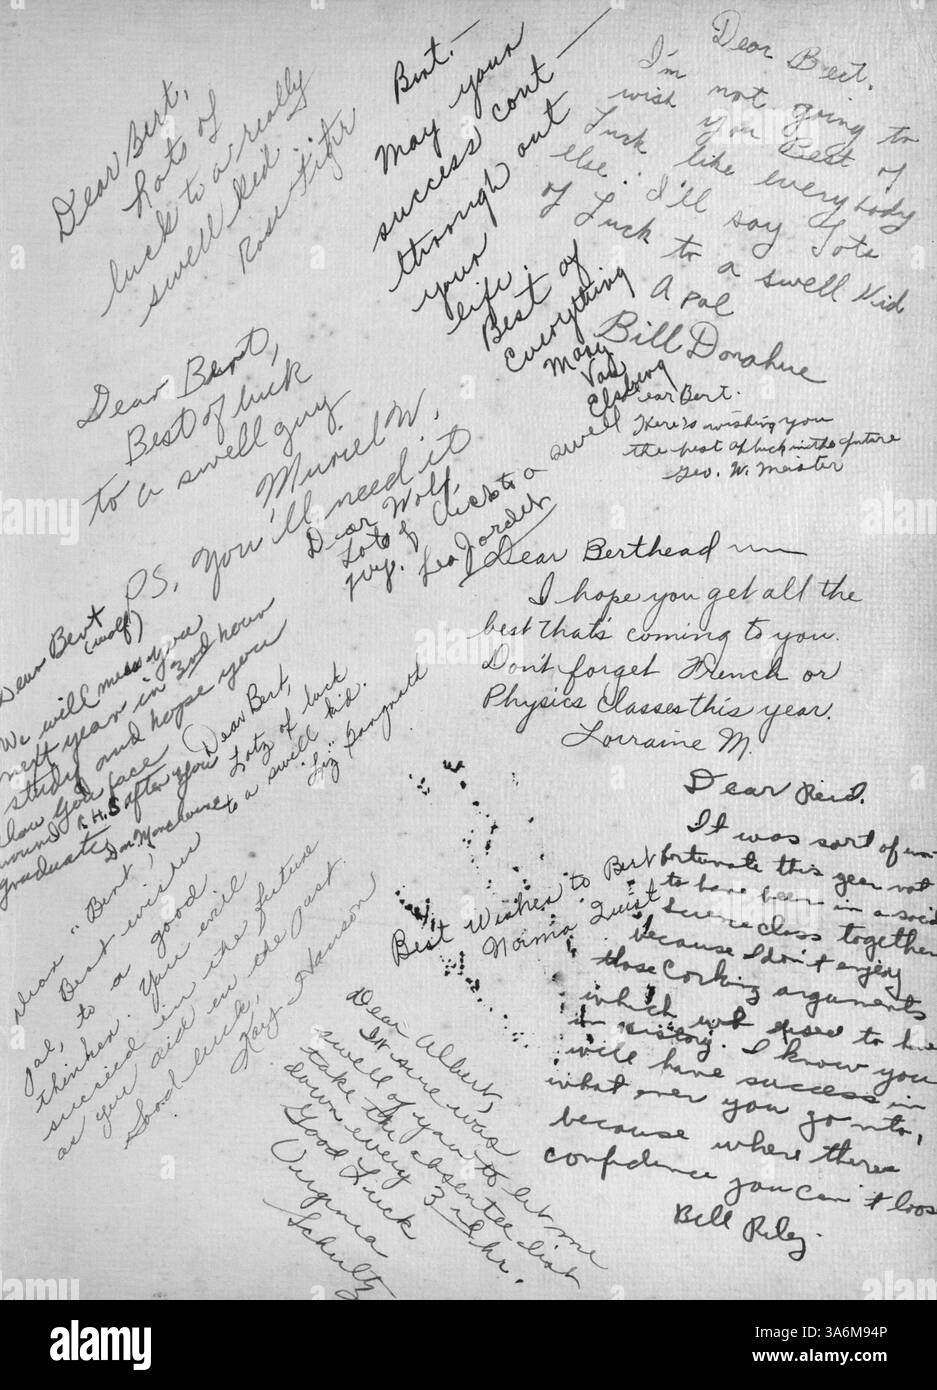 Dear Bert,
Lots of
luck to a really
swell kid.
Rose
Bert.—
May your
success cont—
through out
your
life.
Best of
Everything
Mary
Van
Elsberg
Dear Bert.
I'm not going to
wish you Best of
Luck like everybody
else. I'll say Lots
of Luck to a swell Kid
A pal
Bill Donahue
Dear Bert,
Best of luck
to a swell guy
Muriel W.
P.S. You'll need it
ear Bert.
There's wishing you
the best of luck in the future
Geo. W. Meister
Dear Wolf,
Lots of luck to a swell
guy.
Leo Jordet
Dear Berthead
I hope you get all the
best that's coming to you.
Don't forget French or
Physics Classes this year.
Lorraine M.
Dear Bert
(wolf)
We will miss you
next year in 3rd hour
study and hope you
now you face
around R.H.S after you
graduate
Don
Dear Bert,
Lotz of luck
to a swell kid.
Liz
Dear "Bert",
Best wishes
to a good
pal,
thinker. You will
succeed in the future
as you did in the past.
Good luck,
Kay Hanson
Best Wishes to Bert
Norma Quist
Dear Albert,
I'm sure was
swell of you to let me
take the absentee list
down every 3rd hr.
Good Luck
Virginia
Schultz
Dear Reid.
It was sort of un-
fortunate this year not
to have been in a social
science class together
because I don't enjoy
those Corking arguments
which we used to have
in history. I know you
will have success in
what ever you go into,
because where theres
confidence you can't loos
Bill Riley.
alamy
Image ID: 3A6M94P
www.alamy.com